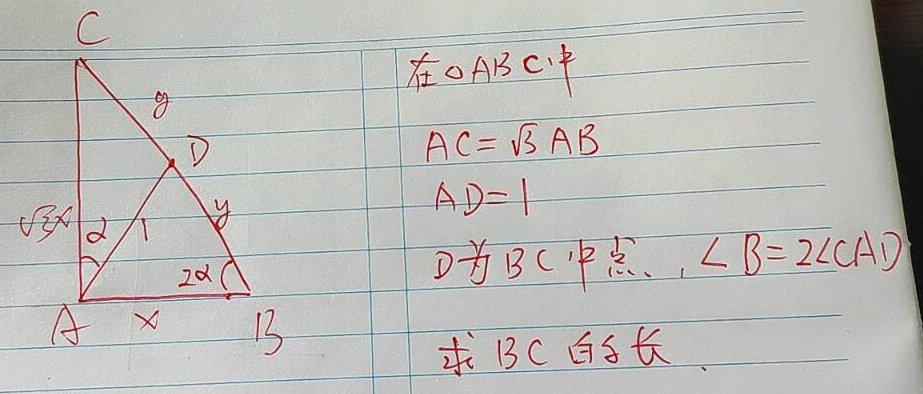 C
y
D
√3x
α
1
y
2α
A
x
B
在△ABC中
AC=√3AB
AD=1
D为BC中点、,∠B=2∠CAD
求BC的长.